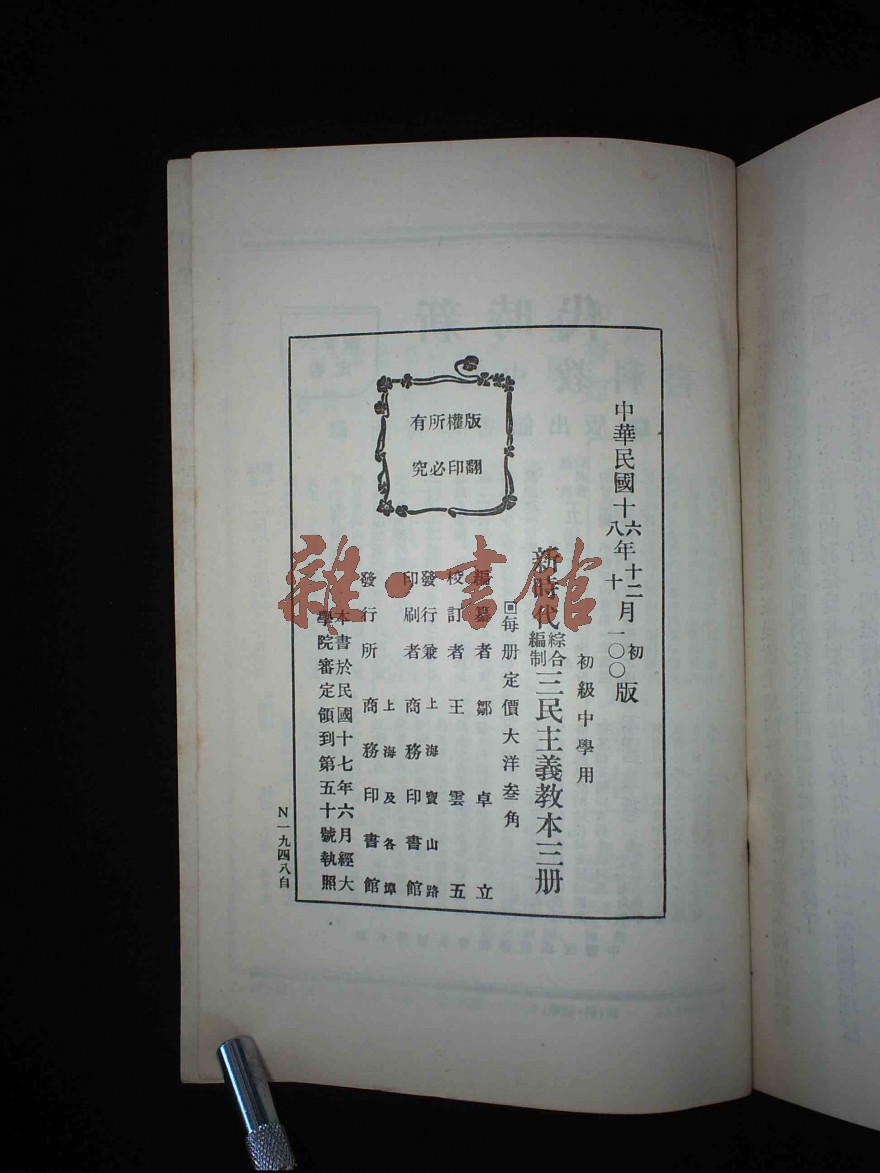 中華民國十六年十二月初版
十八 十 一〇〇
初級中學用
新時代綜合編制三民主義教本三冊
回每册定價大洋叁角
編纂者 鄒卓立
校訂者 王雲五
發行兼印刷者 上海寶山路商務印書館
發行所 上海及各埠商務印書館
本書於民國十七年六月經大
學院審定領到第五十號執照
版權所有
翻印必究
N一九四八自
雜·書館